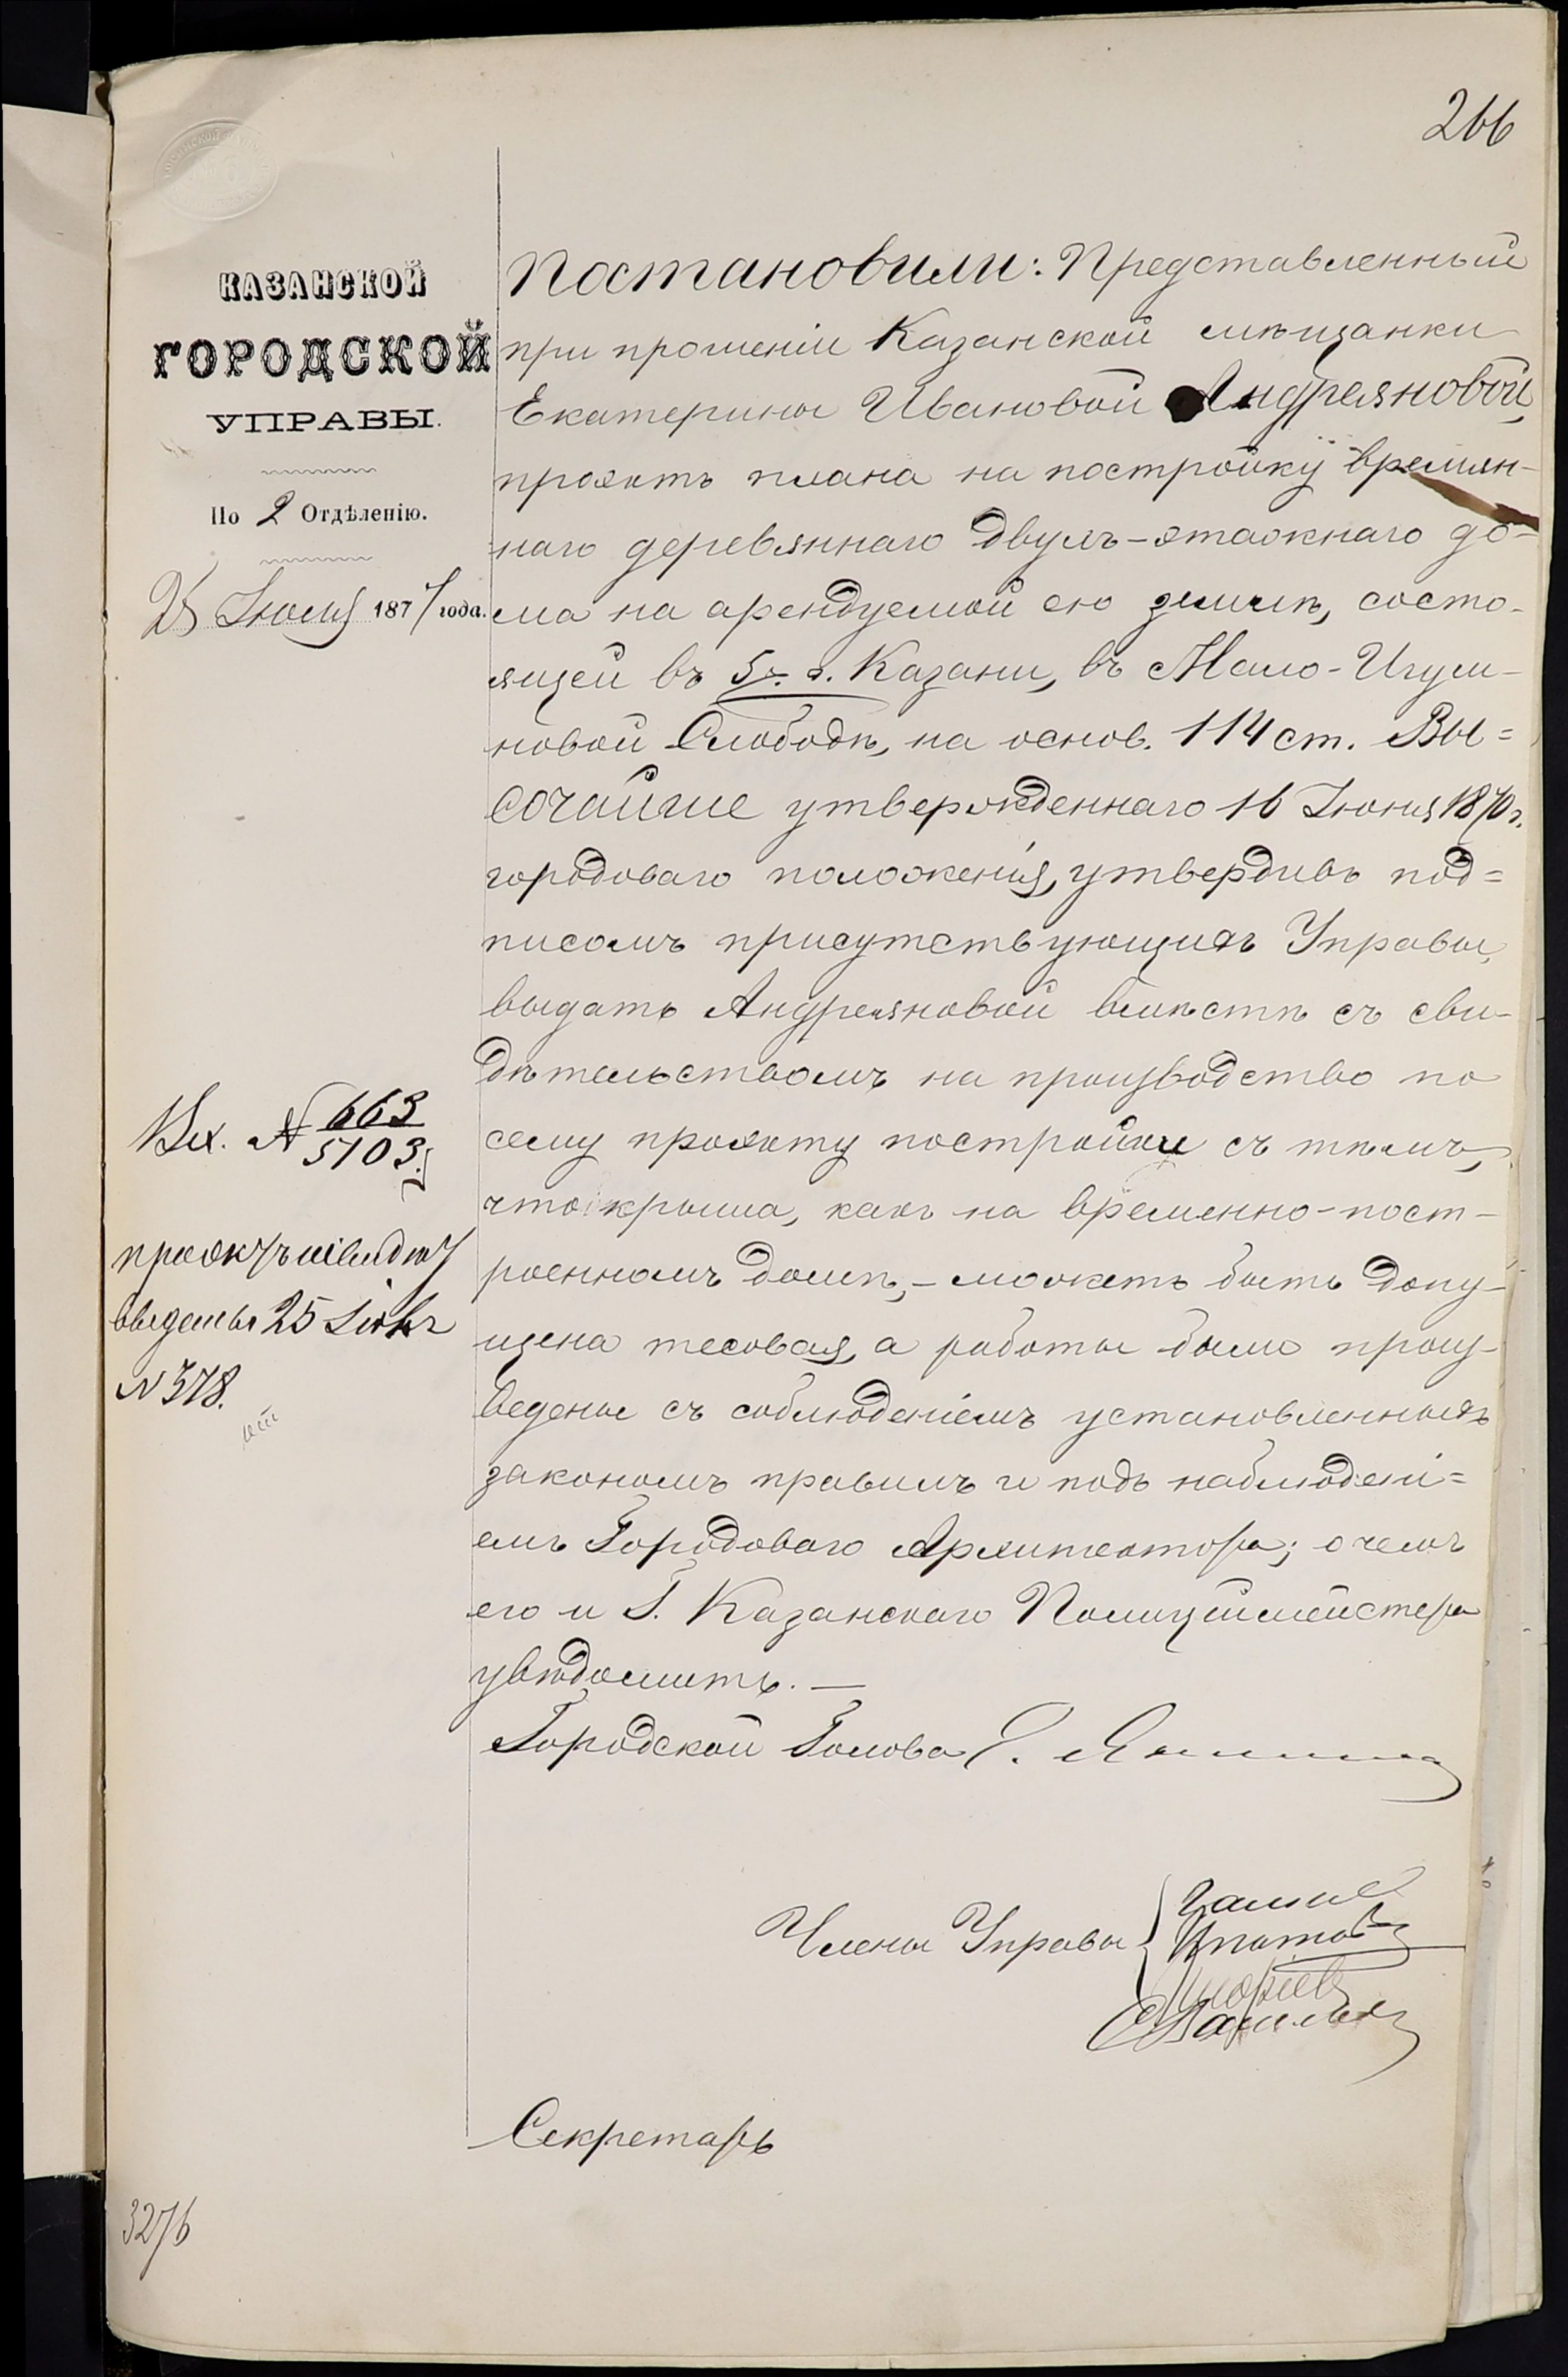 266
КАЗАНСКОЙ
ГОРОДСКОЙ
УПРАВЫ.
По 2 Отдѣленію.
25 Іюля 1877 года.
Постановили: Представленный
при прошеніи Казанской мѣщанки
Екатерины Ивановой Андреяновой,
проэктъ плана на постройку времян-
наго деревяннаго двухъ-этажнаго до-
ма на арендуемой ею землѣ, состо-
ящей въ 5 ч. г. Казани, въ Мало-Игум-
новой Слободѣ, на основ. 114 ст. Вы=
сочайше утвержденнаго 16 Іюня 1870 г.
городоваго положенія, утвердивъ под=
писомъ присутствующихъ Управы,
выдать Андреяновой вмѣстѣ съ сви-
дѣтельствомъ на производство по
сему проэкту постройки съ тѣмъ,
что крыша, какъ на временно-пост-
роенномъ домѣ, - можетъ быть допу-
щена тесовая, а работы были произ-
ведены съ соблюденіемъ установленныхъ
закономъ правилъ и подъ наблюдені=
емъ Городоваго Архитектора; о чемъ
его и Г. Казанскаго Полицеймейстера
увѣдомить. —
Вх. № 663
5103
проэктъ
выданы 25
№ 378.
Городской Голова Э. Янишев
Члены Управы
Ипатов
Секретарь
3276